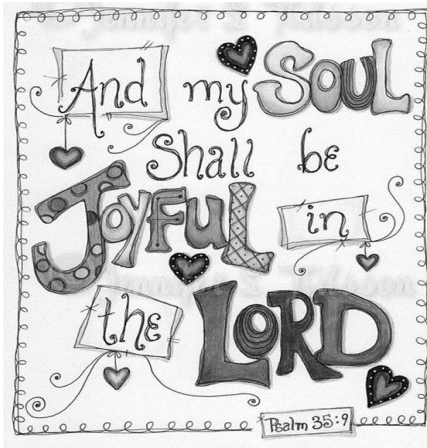 And my SOUL
Shall be
JOYFUL in
the LORD
Psalm 35:9